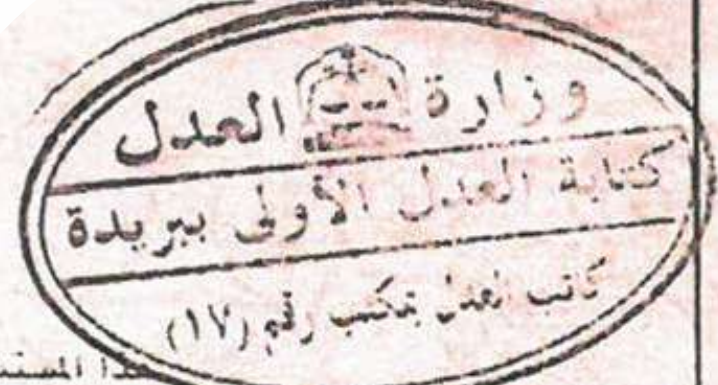 وزارة العدل
كتابة العدل الأولى ببريدة
كاتب العدل بمكتب رقم (١٧)
هذا المستند